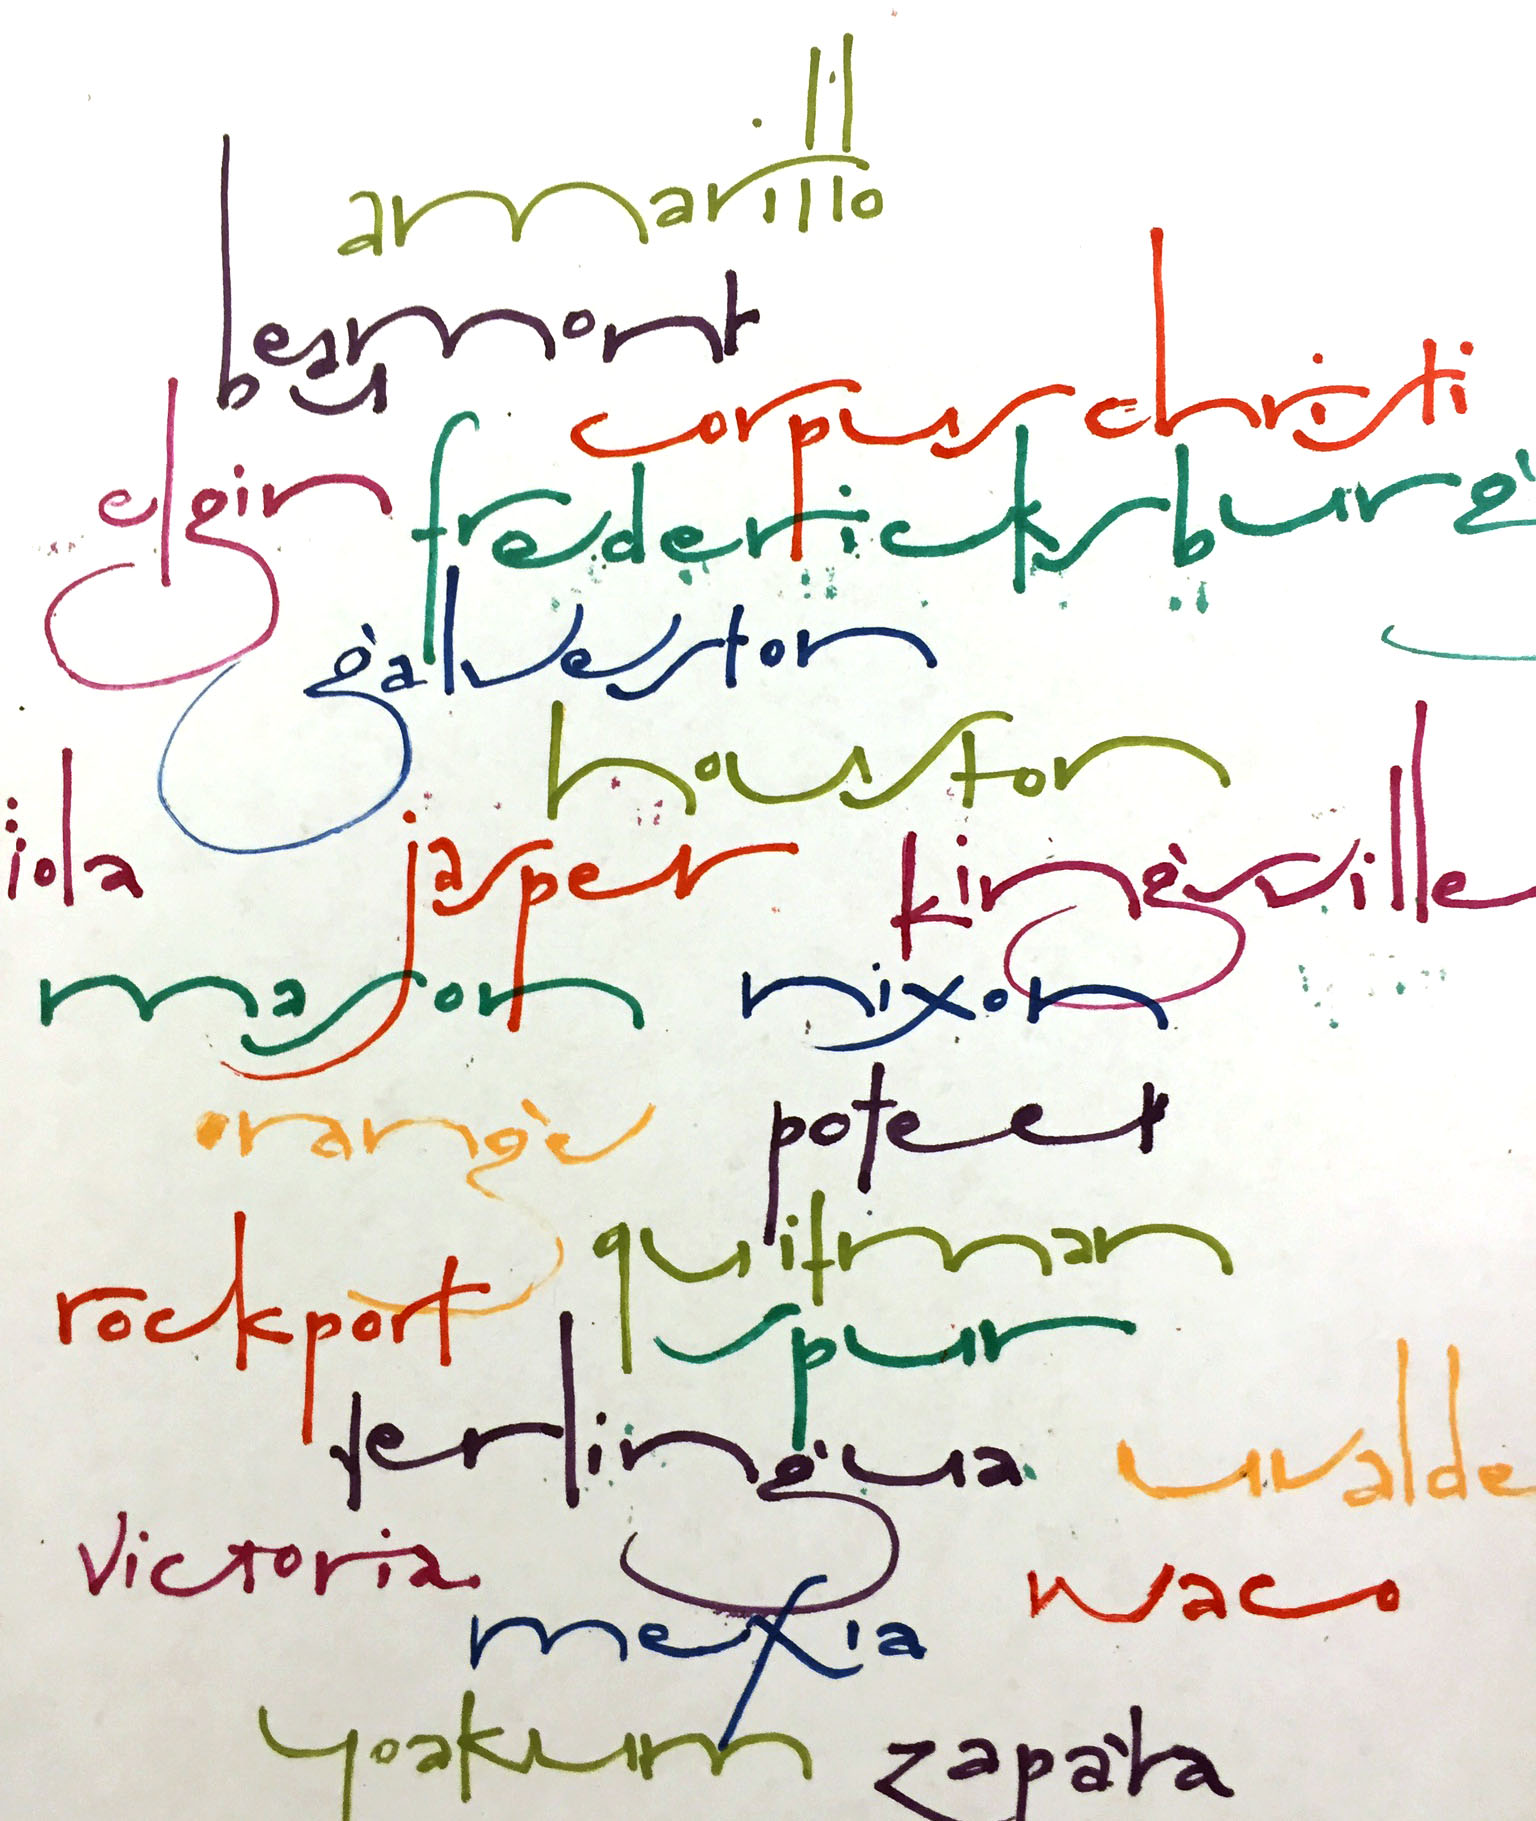 amarillo
beaumont
corpus christi
elgin
fredericksburg
galveston
houston
iola
jasper
kingsville
mason
nixon
orange
poteet
quitman
rockport
spur
terlingua
uvalde
victoria
waco
mexia
yoakum
zapata